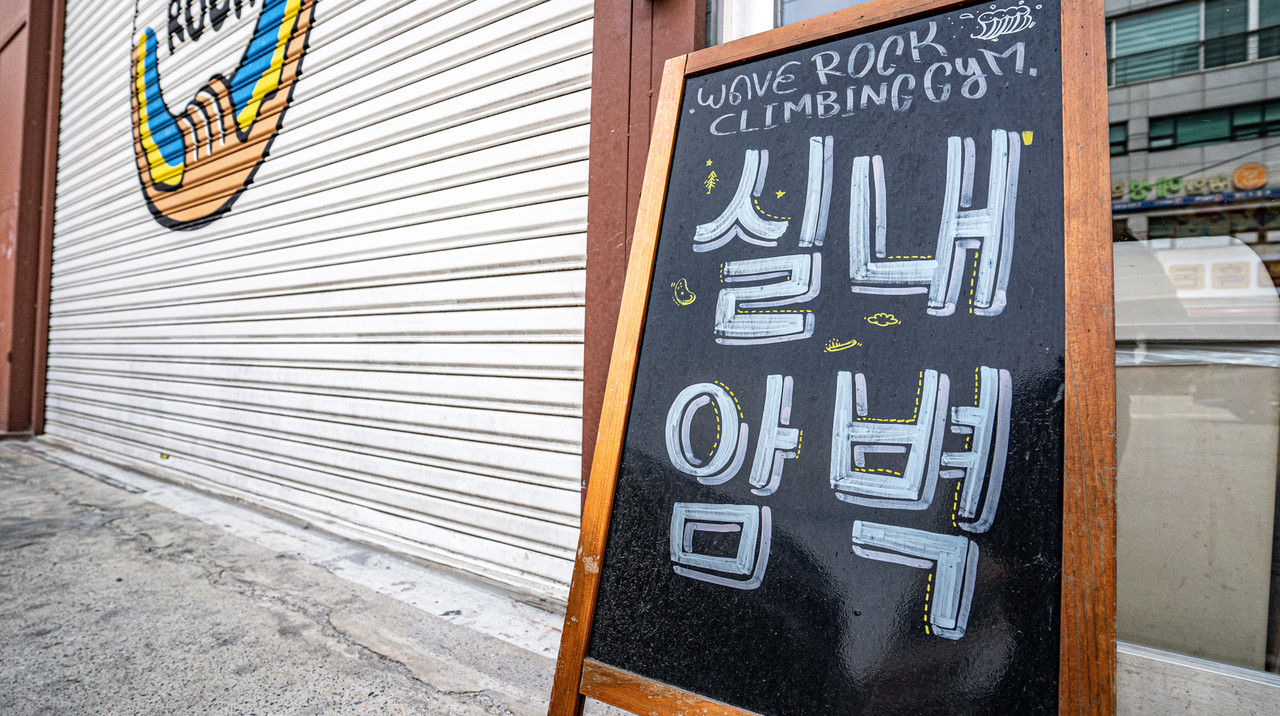 WAVE ROCK
CLIMBING GYM.
실내
암벽